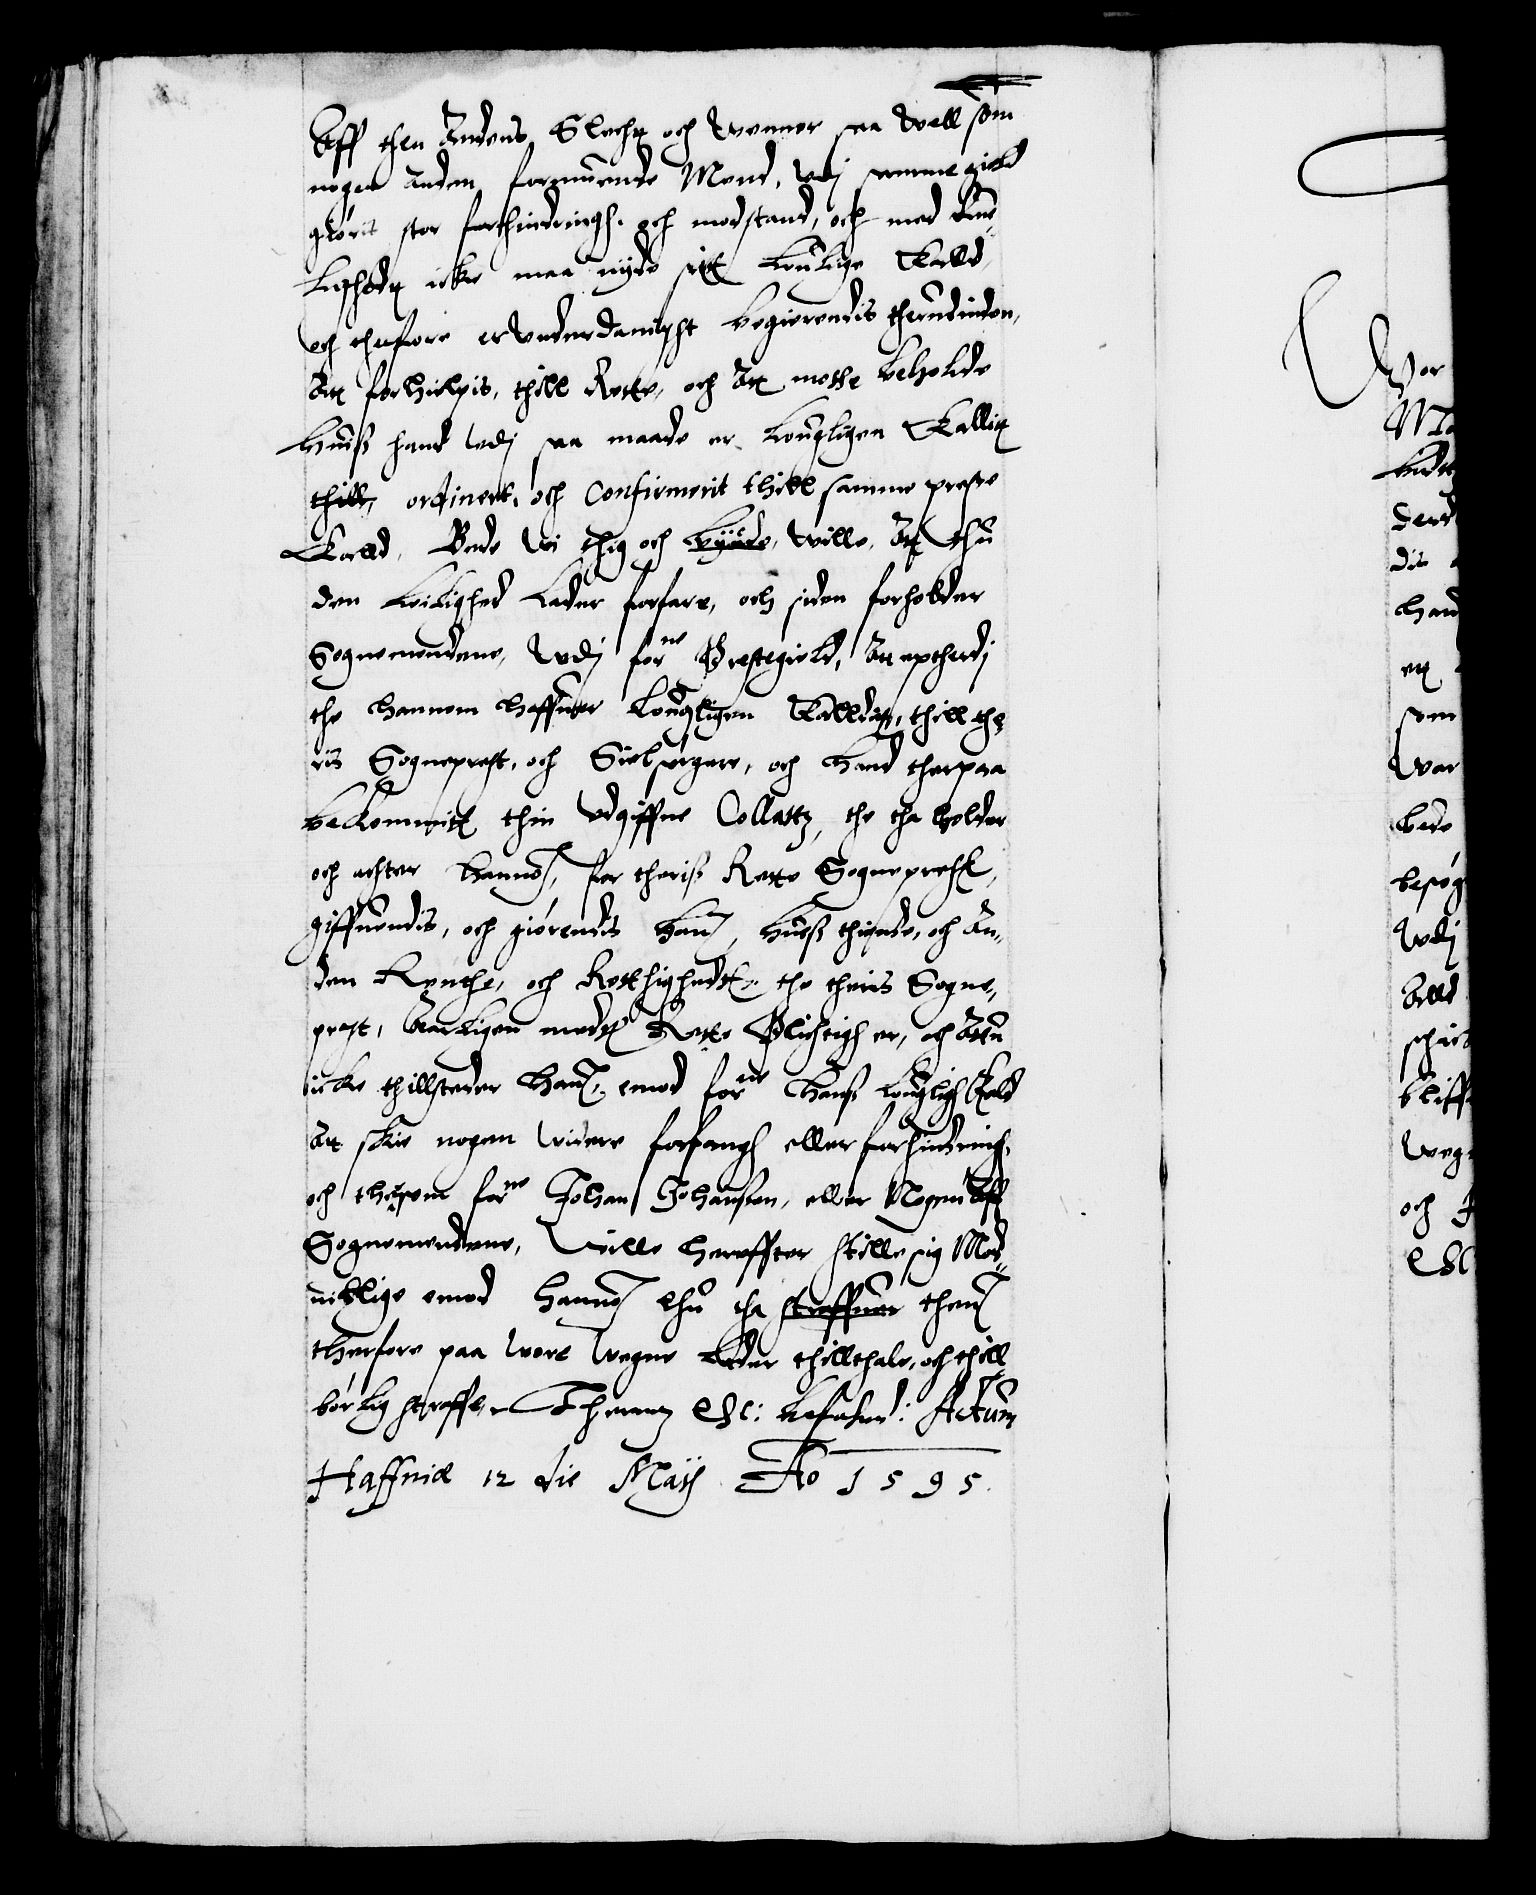 Aff then Andens Slecht och Wenner saa well som
nogen Anden formuende Mend, Udj samme gield
giöris stor forhindringh. och modstand, och med Rue-
lighedt icke maa nyde sitt louglige Kald,
och therfore er Underdanigst begierendis therudinden,
Att forhielpis, thill Rette, och Att motte beholde
huess hand Udj saa maade er lougligen Kallit
thill, ordinert, och Confirmerit thill samme preste
Kald. Bede Wi thig och biude, wille, Att thu
den leiglighed lader forfare, och siden forholder
Sognemendene, Udj forne Prestegield, Att epttherdj
the hannem haffuer lougligen Kalldett, thill the
ris Sogneprest, och Sielsörgere, och hand therpaa
bekommitt thin Udgiffne Collattz, the tha holder
och achter hannom, for theris Rette Sogneprest,
giffuendis, och giörendis ham, huess thiende, och An-
den Renthe, och Retthighedt, the theris Sogne-
prest, Aarligen medt Rette Plichtigh er, och Att thu
icke thillsteder ham, emod forne hans louglig Kald
Att skie nogen Videre forfangh eller forhindringh,
och thersom forne Johan Johansen, eller Nogen Aff
Sognemendene, Wille hereffter stille sig Mod-
uillige emod hannom thu tha straffuer them
therfore paa wore Wegne lader thillthale, och thill
börlig straffe, Thermz etc: befalend: Actum
Haffniæ 12 die Maij Ao 1595.
Wor
Ma
dis
hand
ett
som
war
bede
besög
Udj
Alld
bliff
weg
och
etc